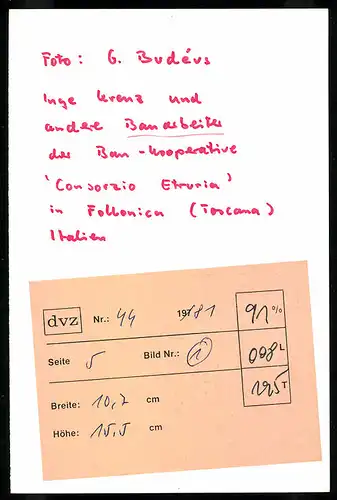 Foto: G. Budéus
Inge Krenz und
andere Bauarbeiter
der Bau-Kooperative
'Consorzio Etruria'
in Follonica (Toscana)
Italien
dvz Nr.: 44 1981 91 %
Seite 5 Bild Nr.: 1 098 L
195 T
Breite: 10,7 cm
Höhe: 15,5 cm